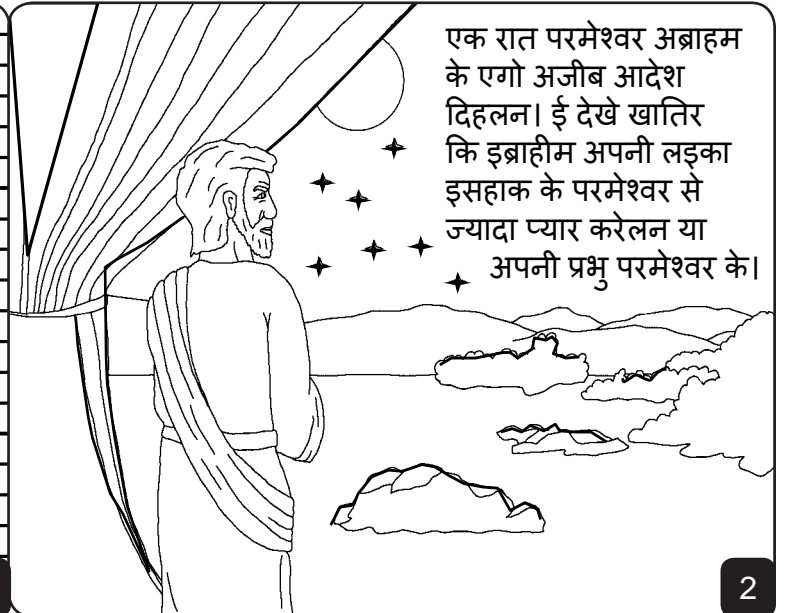 एक रात परमेश्वर अब्राहम
के एगो अजीब आदेश
दिहलन। ई देखे खातिर
कि इब्राहीम अपनी लड़का
इसहाक के परमेश्वर से
ज्यादा प्यार करेलन या
अपनी प्रभु परमेश्वर के।
2